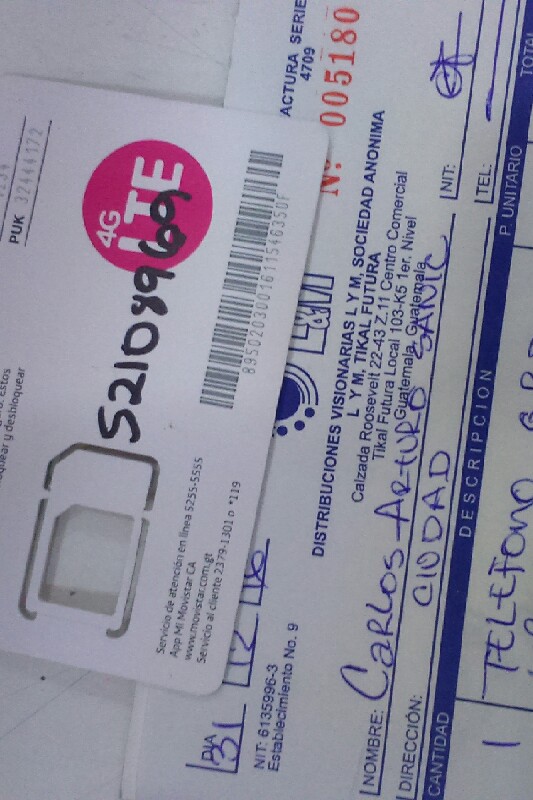 1234
PUK 32444172
4G
LTE
52108969
8950203001611546350F
Estos
quear y desbloquear
Servicio de atención en línea 5255-5555
App Mi Movistar CA
www.movistar.com.gt
Servicio al cliente 2379-1301 o *119
FACTURA SERIE
4709
Nº 005180
DISTRIBUCIONES VISIONARIAS L Y M, SOCIEDAD ANONIMA
L Y M, TIKAL FUTURA
Calzada Roosevelt 22-43 Z.11 Centro Comercial
Tikal Futura Local 103-K5 1er. Nivel
Guatemala, Guatemala
DIA
31 12 16
NIT: 6135996-3
Establecimiento No. 9
NOMBRE: CARLOS ARTURO SANIC NIT: CF
DIRECCIÓN: CIUDAD TEL:
CANTIDAD DESCRIPCION P. UNITARIO TOTAL
1 TELEFONO